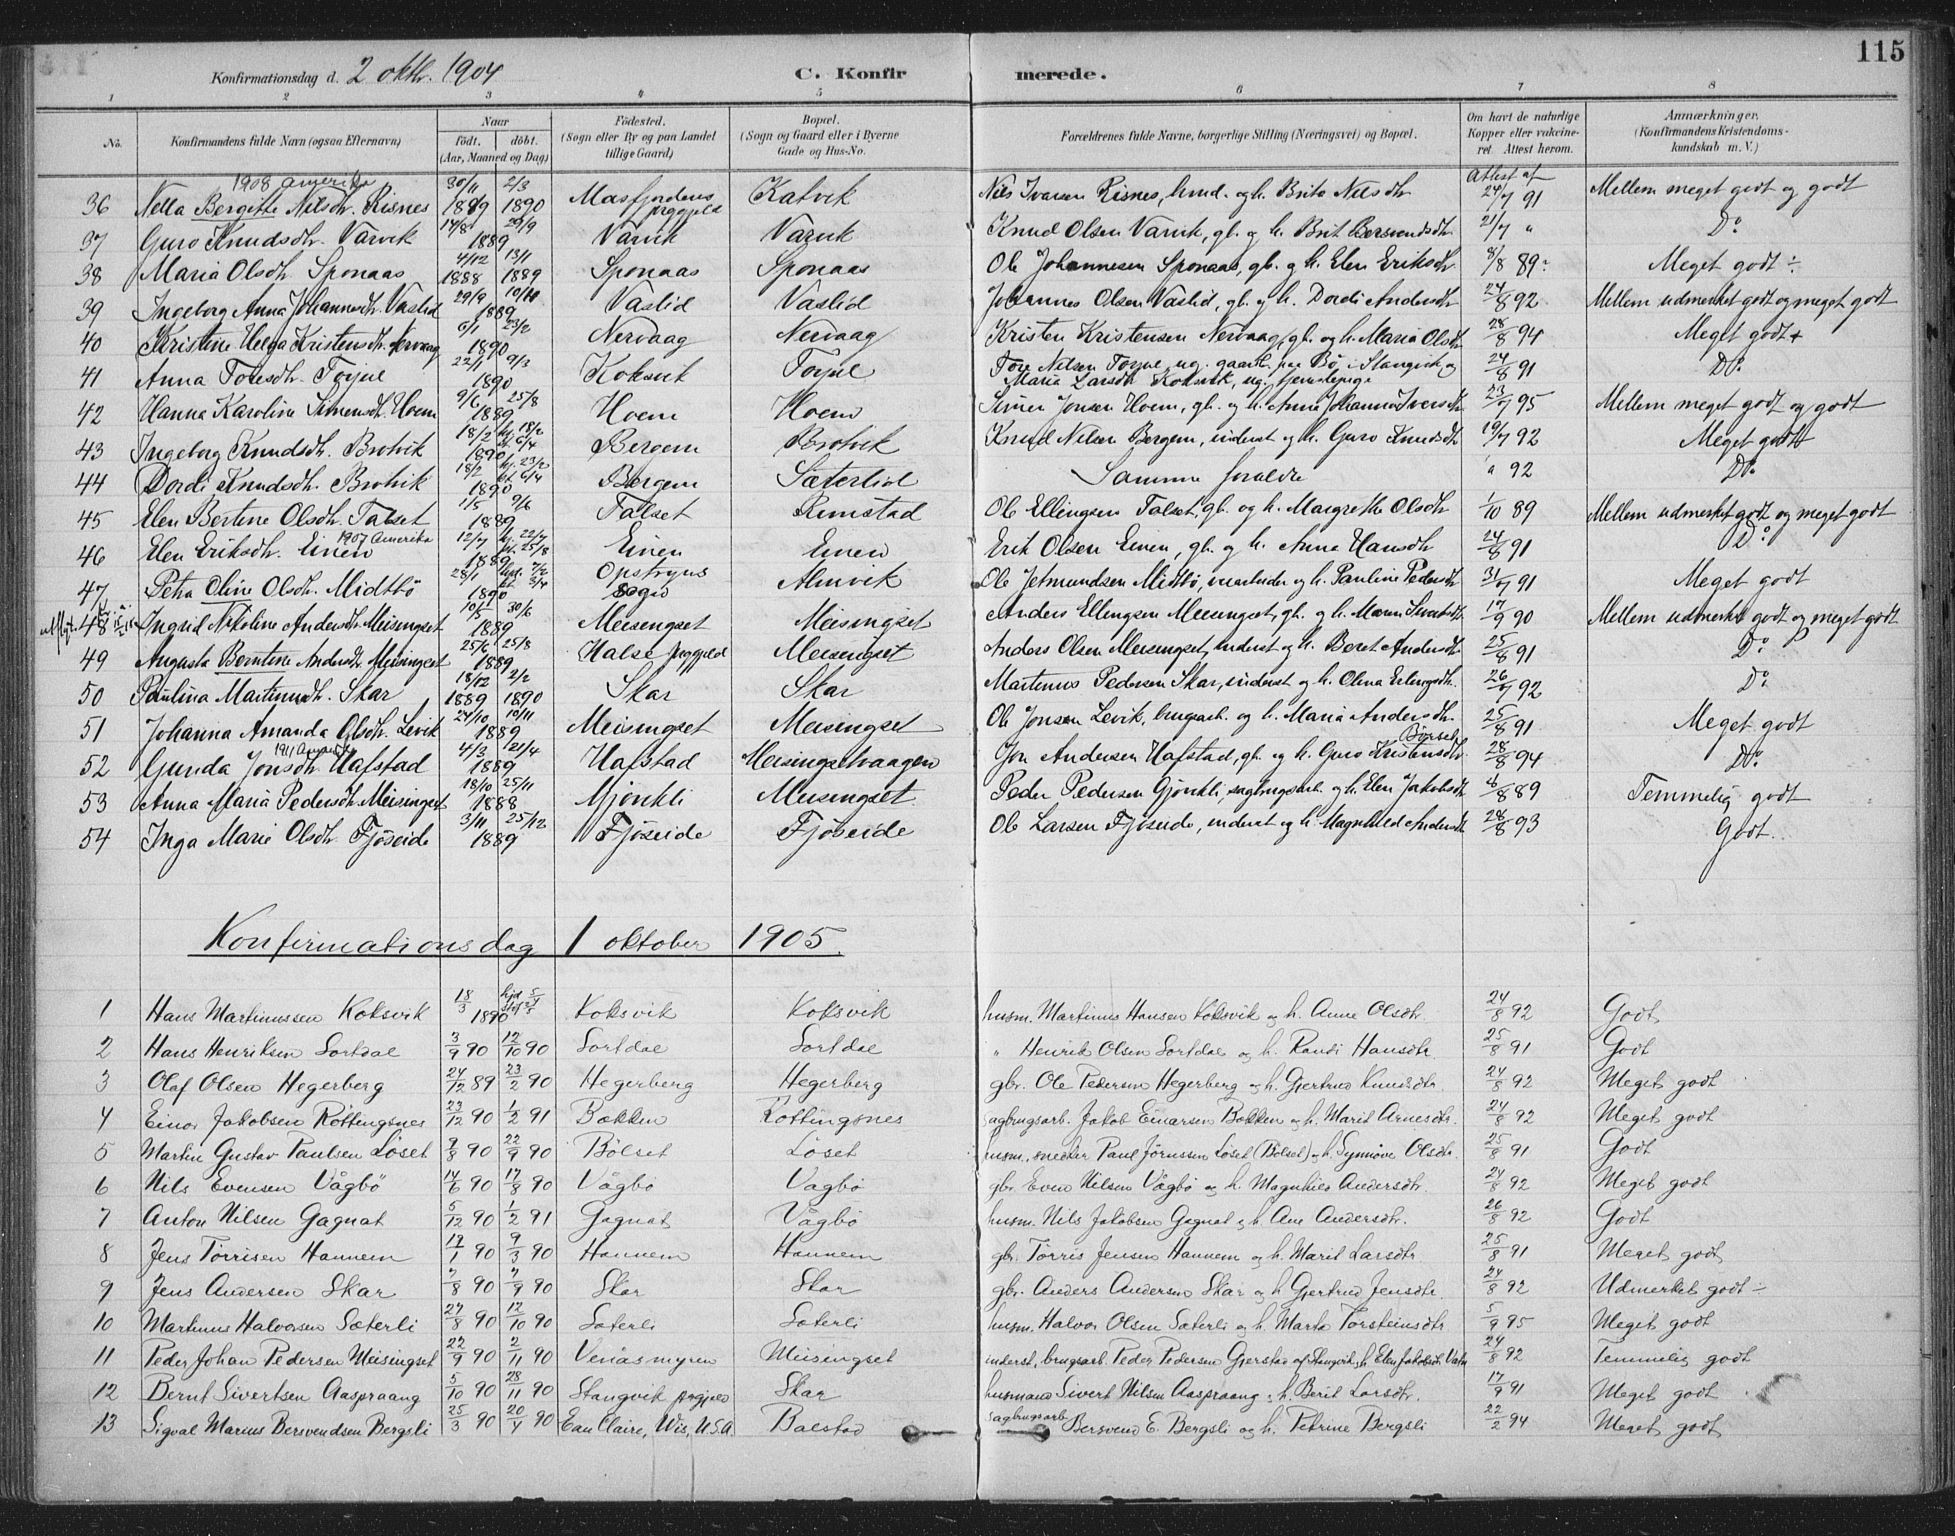 115
Konfirmationsdag d. 2 oktr. 1904 C. Konfirmerede.
1 2 3 4 5 6 7 8
No. Konfirmandens fulde Navn (ogsaa Efternavn) Naar født. døbt. (Aar, Maaned og Dag) Fødested. (Sogn eller By og paa Landet tillige Gaard) Bopæl. (Sogn og Gaard eller i Byerne Gade og Hus-No. Forældrenes fulde Navne, borgerlige Stilling (Næringsvei) og Bopæl. Om havt de naturlige Kopper eller vakcineret. Attest herom. Anmærkninger. (Konfirmandens Kristendomskundskab m. V.)
1908 Amerika
36 Nella Bergitte Nilsdtr. Risnes 30/11 1889 2/3 1890 Masfjordens prgjeld Katvik Nils Ivarsen Risnes, hmd. og h. Brita Nilsdtr Attest af 24/7 91 Mellem meget godt og godt
37 Guro Knudsdtr. Varvik 14/8 29/9 1889 Varvik Varvik Knud Olsen Varvik, gb. og h. Brit Bersvendsdtr 21/7 " Do
38 Maria Olsdtr. Sponaas 4/12 1888 13/1 1889 Sponaas Sponaas Ole Johannesen Sponaas, gb. og h. Elen Eriksdtr 8/8 89 Meget godt ÷
39 Ingeborg Anna Johannesdtr. Vaslid 29/9 10/11 1889 Vaslid Vaslid Johannes Olsen Vaslid, gb. og h. Dordi Andersdtr 24/8 92 Mellem udmerket godt og meget godt
40 Kristine Helga Kristensdtr. Nervaag 6/1 23/2 1890 Nervaag Nervaag Kristen Kristensen Nervaag, gb. og h. Maria Olsdtr 28/8 94 Meget godt +
41 Anna Toresdtr. Torjul 22/1 9/3 1890 Koksvik Torjul Tore Nilsen Torjul, ug. gaardb. paa Bø i Stangvik og Maria Larsdtr Koksvik, ug. tjenestepige 24/8 91 Do.
42 Hanna Karoline Simensdtr. Hoem 9/6 25/8 1889 Hoem Hoem Simen Jonsen Hoem, gb. og h. Anne Johanna Iversdtr 23/7 95 Mellem meget godt og godt
43 Ingeborg Knudsdtr. Brotvik 18/2 hj. 18/2 kr. 6/4 1890 Bergem Brotvik Knud Nilsen Bergem, inderst og h. Guro Knudsdtr 19/7 92 Meget godt
44 Dordi Knudsdtr. Brotvik 18/2 hj. 23/2 kr. 6/4 1890 Bergem Sæterlid Samme forældre " 92 Do.
45 Elen Bertine Olsdtr. Talset 1/5 9/6 1889 Talset Rimstad Ole Ellingsen Talset, gb. og h. Margrethe Olsdtr 1/10 89 Mellem udmerket godt og meget godt
46 Elen Eriksdtr. Einen 1907 Amerika 12/7 hj. 22/7 kr. 25/8 1889 Einen Einen Erik Olsen Einen, gb. og h. Anne Hansdtr 24/8 91 Do
47 Petra Oline Olsdtr. Midtbö 28/1 7/2 kr. 3/4 1890 Opstryns Sogn Almvik Ole Jetmundsen Midtbö, og h. Pauline Pedersdtr 31/7 91 Meget godt
48 Ingrid Nikoline Andersdtr. Meisingset 10/5 30/6 1889 Meisingset Meisingset Anders Ellingsen Meisingset, gb. og h. Maren Sivertsdtr 17/9 90 Mellem udmerket godt og meget godt
49 Augusta Berntine Andersdtr. Meisingset 25/6 25/8 1889 Halse prgjeld Meisingset Anders Olsen Meisingset, inderst og h. Beret Andersdtr 25/8 91 Do
50 Paulina Martinusdtr. Skar 18/12 1889 2/2 1890 Skar Skar Martinus Pedersen Skar, inderst og h. Olina Erlingsdtr. 26/7 92 Do.
51 Johanna Amanda Olsdtr. Levik 24/10 10/11 1889 Meisingset Meisingset Ole Jonsen Levik, brugsarb. og h. Maria Andersdtr 25/8 91 Meget godt
52 Gunda Jonsdtr. Hafstad 1911 Amerika 4/3 21/4 1889 Hafstad Meisingsetvaagen Jon Andersen Hafstad, gb. og h. Guro Kristensdtr Börset 28/8 94 Do.
53 Anna Maria Pedersdtr. Meisingset 18/10 25/11 1888 Mjönkli Meisingset Peder Pedersen Gjönkli, sagbrugsarb. og h. Elen Jakobsdtr 8/8 89 Temmelig godt
54 Inga Marie Olsdtr. Fjöseide 3/11 25/12 1889 Fjöseide Fjöseide Ole Larsen Fjöseide, inderst og h. Magnhild Andersdtr 28/8 93 Godt.
Konfirmationsdag 1 oktober 1905.
1 Hans Martinussen Koksvik 18/3 1890 hjd 5/4 Koksvik Koksvik husm. Martinus Hansen Koksvik og h. Anne Olsdtr. 24/8 92 Godt
2 Hans Henriksen Sortdal 3/9 90 12/10 90 Sortdal Sortdal " Henrik Olsen Sortdal og h. Randi Hansdtr 25/8 91 Godt
3 Olaf Olsen Hegerberg 24/12 89 23/2 90 Hegerberg Hegerberg gbr. Ole Pedersen Hegerberg og h. Gjertrud Knudsdtr. 24/8 92 Meget godt
4 Einar Jakobsen Röttingsnes 23/12 90 1/2 91 Bakken Rottingsnes sagbrugsarb. Jakob Einarsen Bakken og h. Marit Arnesdtr. 24/8 92 Meget godt
5 Martin Gustav Paulsen Löset 9/8 90 22/9 90 Bölset Löset husm, snedker Paul Jörnssen Löset (Bölset) og h. Synnöve Olsdtr. 25/8 91 Godt
6 Nils Evensen Vågbö 14/6 90 17/8 90 Vågbö Vågbö gbr. Even Nilsen Vågbö og h. Magnhild Andersdtr. 24/8 92 Meget godt
7 Anton Nilsen Gagnat 5/12 90 1/2 91 Gagnat Vågbö husm. Nils Jakobsen Gagnat og h. Ane Andersdtr. 26/8 92 Godt
8 Jens Törrisen Hannem 17/1 90 9/3 90 Hannem Hannem gbr. Törris Jensen Hannem og h. Marit Larsdtr 25/8 91 Meget godt
9 Jens Andersen Skar 7/8 90 7/9 90 Skar Skar gbr. Anders Andersen Skar og h. Gjertrud Jensdtr. 24/8 92 Udmerket godt ÷
10 Martinus Halvorsen Sæterli 27/8 90 12/10 90 Sæterli Sæterli husm. Halvor Olsen Sæterli og h. Marta Torsteinsdtr 5/9 95 Meget godt
11 Peder Johan Pedersen Meisingset 22/9 90 2/11 90 Veriasmyren Meisingset inderst, brugsarb. Peder Pedersen Gjerstad af Stangvik, h. Elen Jakobsdtr 24/8 92 Temmelig godt
12 Bernt Sivertsen Aaspraang 5/10 90 28/11 90 Stangvik prgjeld Skar husmand Sivert Nilsen Aaspraang og h. Berit Larsdtr. 17/9 91 Meget godt
13 Sigval Marius Bersvendsen Bergsli 25/3 90 20/4 90 Eau Claire, Wis, U.S.A. Balstad sagbrugsarb Bersvend E. Bergsli og h. Petrine Bergsli 22/2 94 Meget godt